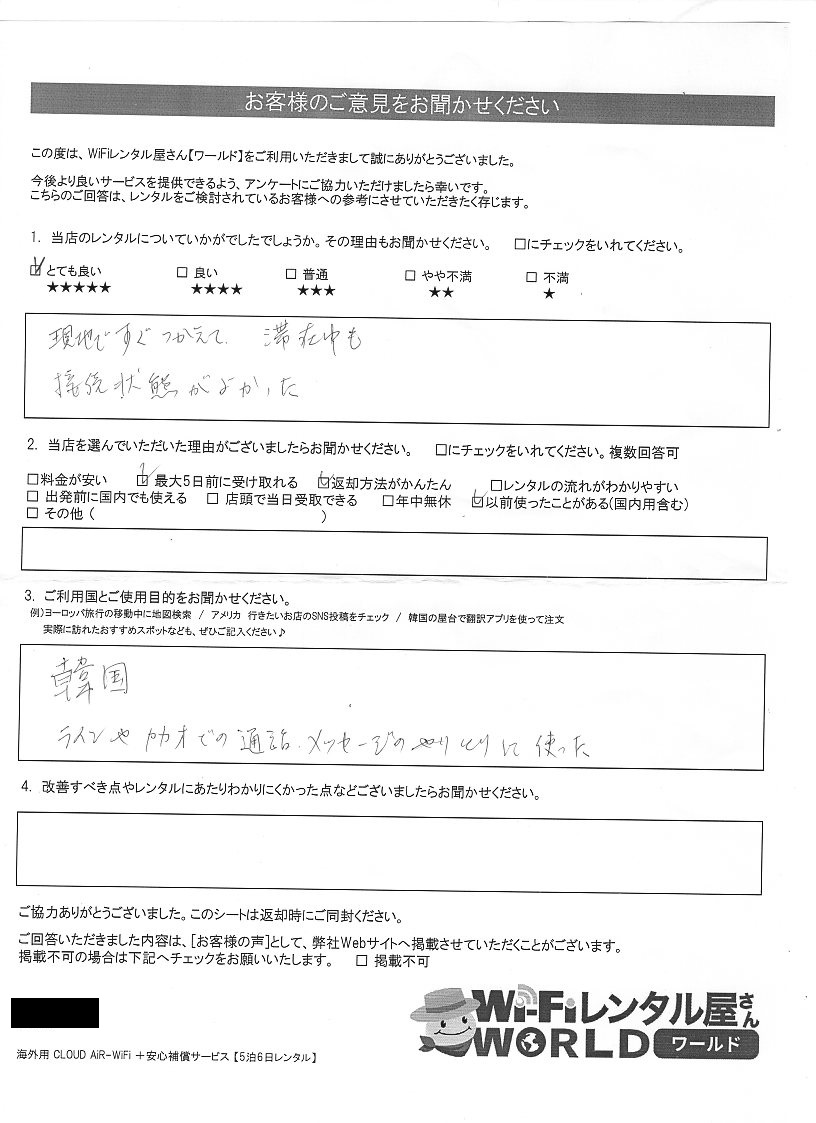 お客様のご意見をお聞かせください
この度は、WiFiレンタル屋さん【ワールド】をご利用いただきまして誠にありがとうございました。
今後より良いサービスを提供できるよう、アンケートにご協力いただけましたら幸いです。
こちらのご回答は、レンタルをご検討されているお客様への参考にさせていただきたく存じます。
1. 当店のレンタルについていかがでしたでしょうか。その理由もお聞かせください。 □にチェックをいれてください。
☑とても良い □ 良い □ 普通 □ やや不満 □ 不満
★★★★★ ★★★★ ★★★ ★★ ★
現地ですぐつかえて、滞在中も
接続状態がよかった
2. 当店を選んでいただいた理由がございましたらお聞かせください。 □にチェックをいれてください。複数回答可
□料金が安い ☑ 最大5日前に受け取れる ☑返却方法がかんたん □レンタルの流れがわかりやすい
□ 出発前に国内でも使える □ 店頭で当日受取できる □年中無休 ☑以前使ったことがある(国内用含む)
□ その他 ( )
3. ご利用国とご使用目的をお聞かせください。
例)ヨーロッパ旅行の移動中に地図検索 / アメリカ 行きたいお店のSNS投稿をチェック / 韓国の屋台で翻訳アプリを使って注文
実際に訪れたおすすめスポットなども、ぜひご記入ください♪
韓国
ラインやカカオでの通話、メッセージのやりとりに使った
4. 改善すべき点やレンタルにあたりわかりにくかった点などございましたらお聞かせください。
ご協力ありがとうございました。このシートは返却時にご同封ください。
ご回答いただきました内容は、[お客様の声]として、弊社Webサイトへ掲載させていただくことがございます。
掲載不可の場合は下記へチェックをお願いいたします。 □ 掲載不可
Wi-Fiレンタル屋さん
WORLD ワールド
海外用 CLOUD AiR-WiFi +安心補償サービス【5泊6日レンタル】